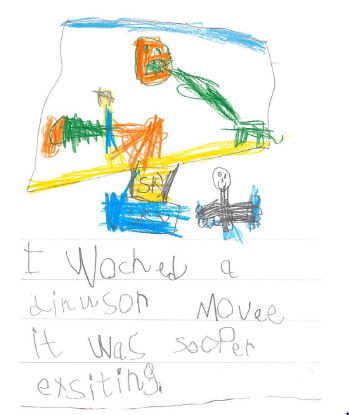 SKY
I Woched a
dinuson Movee
it was sooper
exsiting.